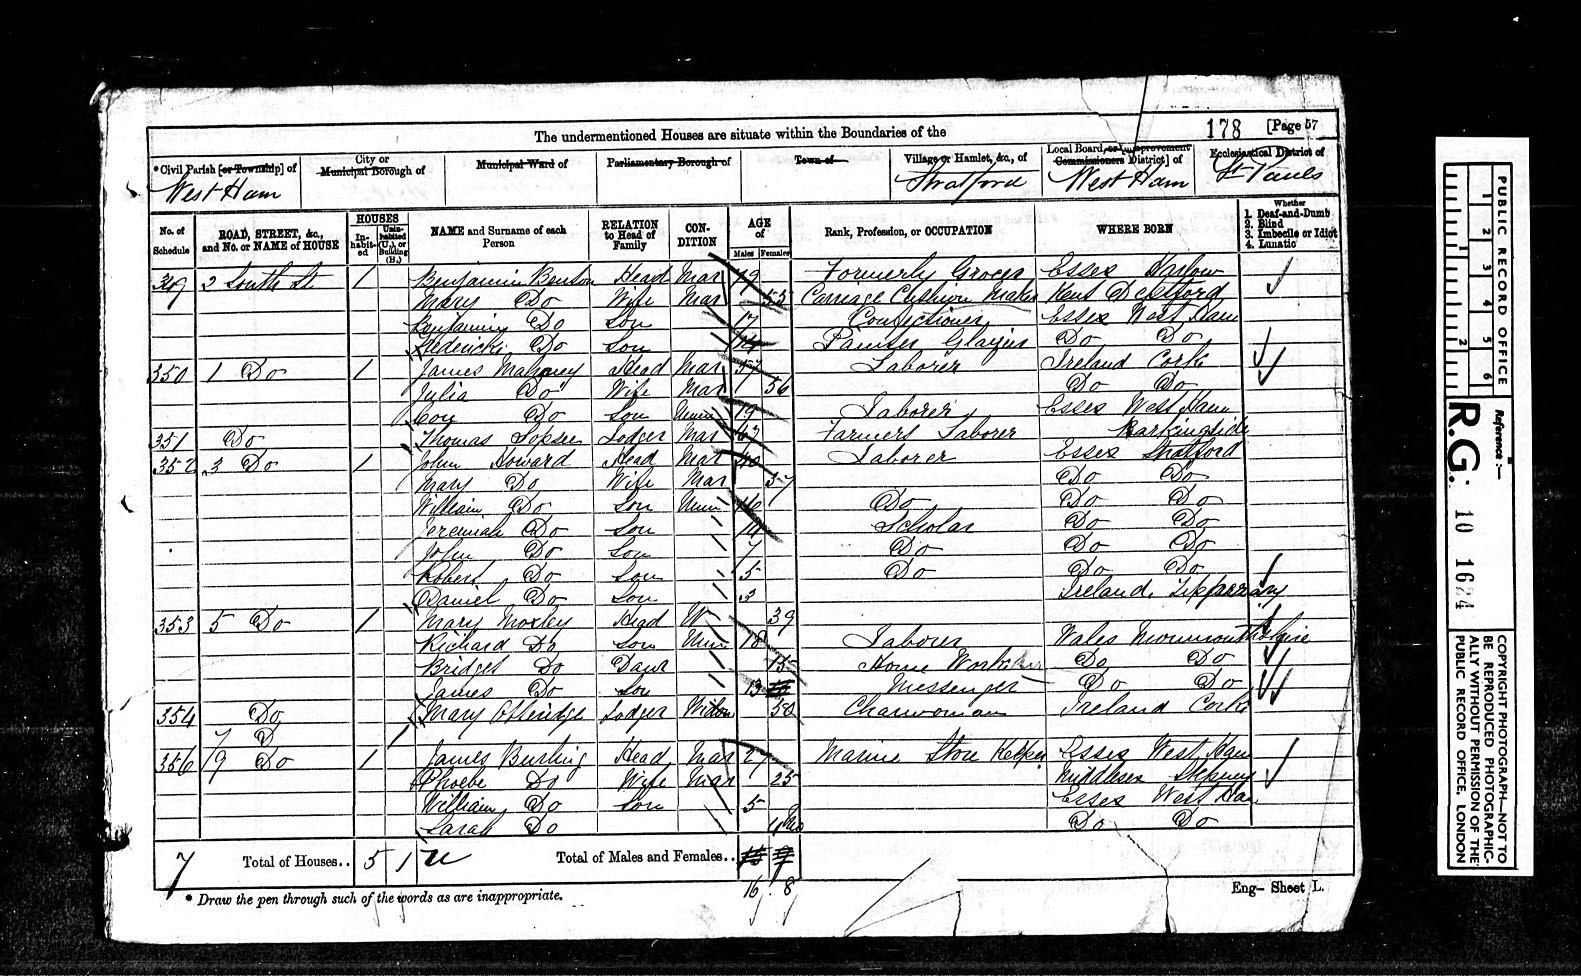 The undermentioned Houses are situate within the Boundaries of the
178 [Page 57
*Civil Parish [or Township] of
City or Municipal Borough of
Municipal Ward of
Parliamentary Borough of
Town of
Village or Hamlet, &c., of
Local Board, or [Improvement Commissioners District] of
Ecclesiastical District of
West Ham Stratford West Ham St Pauls
No. of Schedule
ROAD, STREET, &c., and No. or NAME of HOUSE
HOUSES
In-habit-ed
Unin-habited (U.), or Building (B.)
NAME and Surname of each Person
RELATION to Head of Family
CON-DITION
AGE of
Males Females
Rank, Profession, or OCCUPATION
WHERE BORN
Whether
1. Deaf-and-Dumb
2. Blind
3. Imbecile or Idiot
4. Lunatic
2 South St 1 Benjamin Head Mar Formerly Grocer Essex Harlow
Mary Do Wife Mar 53 Carriage Cushion Maker Kent Deptford
Benjamin Do Son 17 Confectioner Essex West Ham
Do Son Do Do
350 1 Do 1 James Mahoney Head Mar 57 Laborer Ireland Cork
Julia Do Wife Mar 56 Do Do
Con Do Son Unm 19 Laborer Essex West Ham
351 Do Thomas Lodger Mar Farmers Laborer Barkingside
352 3 Do 1 John Howard Head Mar 40 Laborer Essex Stratford
Mary Do Wife Mar 37 Do Do
William Do Son Unm 16 Do Do Do
Jeremiah Do Son Scholar Do Do
John Do Son 7 Do Do Do
Robert Do Son 5 Do Do Do
Daniel Do Son 3 Ireland Tipperary
353 5 Do 1 Mary Moxley Head W 39
Richard Do Son Unm 18 Laborer Wales Monmouthshire
Bridget Do Daur 15 Home Do Do
James Do Son 13 Messenger Do Do
354 Do Mary Lodger Widow 50 Charwoman Ireland Cork
7 D 1
356 9 Do 1 James Head Mar 27 Marine Store Keeper Essex West Ham
Phoebe Do Wife Mar 25 Middlesex Stepney
William Do Son 5 Essex West Ham
Sarah Do Do Do
7 Total of Houses.. 5 1 u Total of Males and Females..
16 8
* Draw the pen through such of the words as are inappropriate.
Eng— Sheet L.
PUBLIC RECORD OFFICE
1 2 3 4 5 6
1 2
Reference:—
R.G. 10 1624
COPYRIGHT PHOTOGRAPH—NOT TO
BE REPRODUCED PHOTOGRAPHIC-
ALLY WITHOUT PERMISSION OF THE
PUBLIC RECORD OFFICE, LONDON